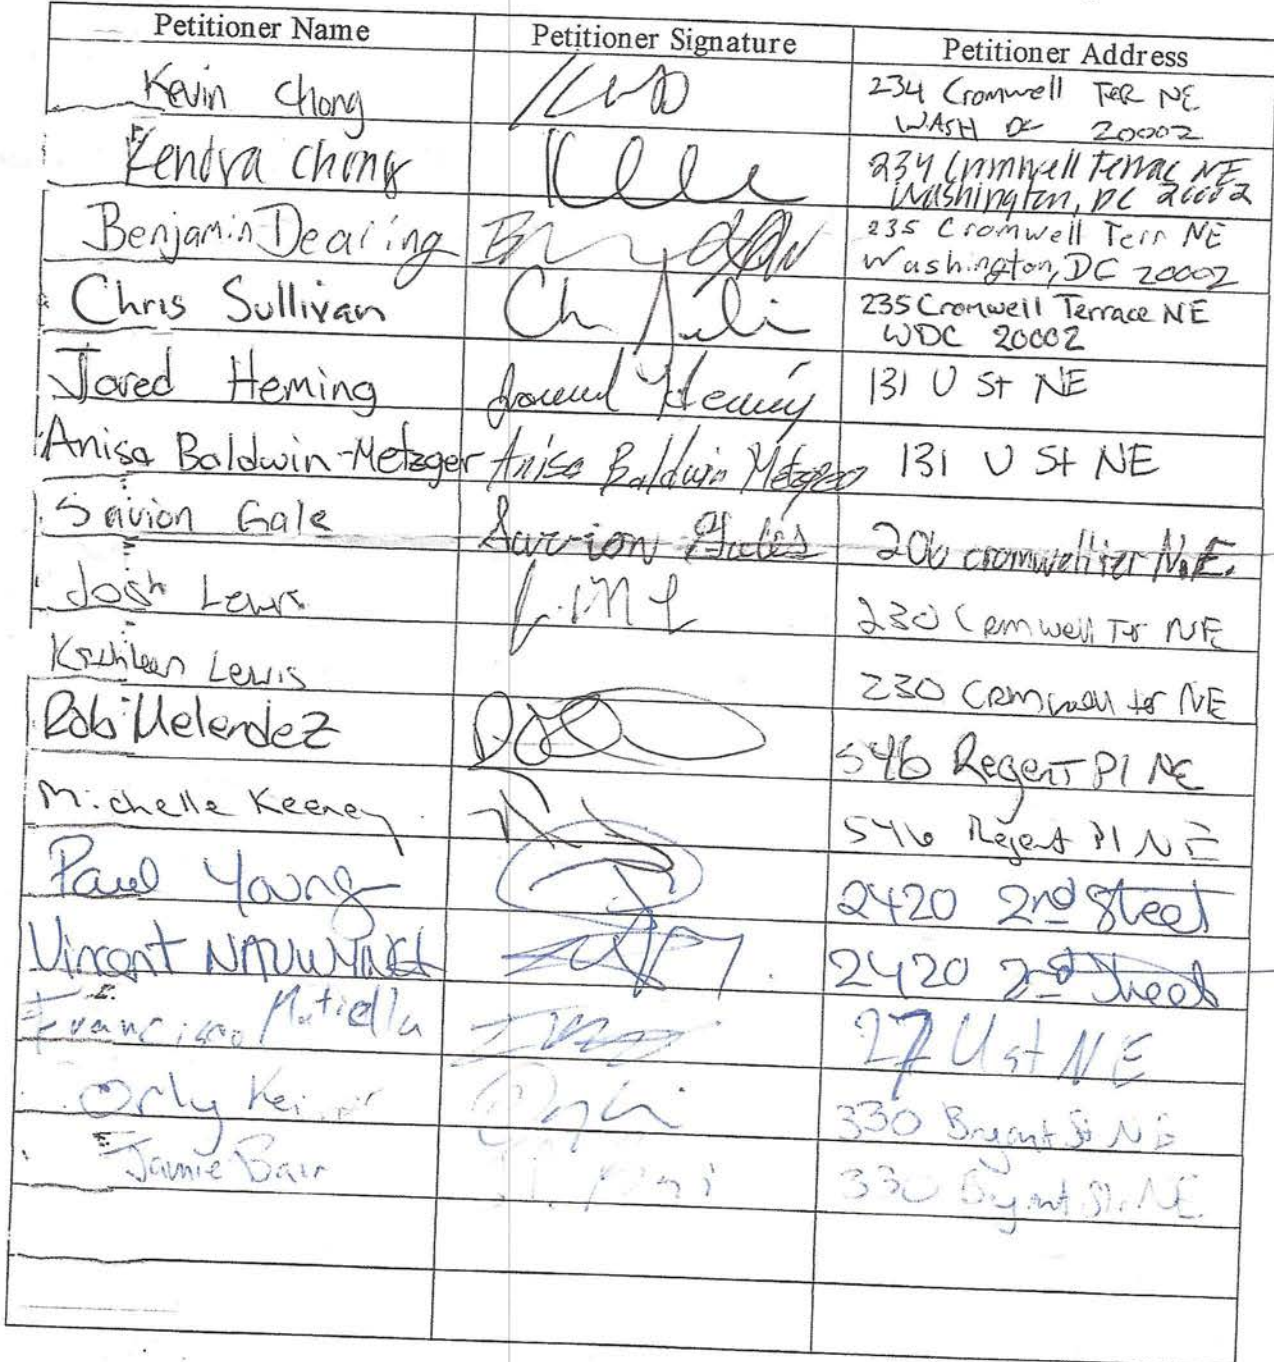 Petitioner Name Petitioner Signature Petitioner Address
Kevin Chong 234 Cromwell TER NE
WASH DC 20002
Kendra Chong 234 Cromwell Terrac NE
Washington, DC 20002
Benjamin Dearing 235 Cromwell Terr NE
Washington, DC 20002
Chris Sullivan 235 Cromwell Terrace NE
WDC 20002
Jared Heming Jared Heming 131 U St NE
Anisa Baldwin-Metzger Anisa Baldwin Metzger 131 U St NE
Savion Gale Savion Gales 206 cromwell ter N.E.
Josh Lewis 230 Cromwell Ter NE
Kathleen Lewis 230 Cromwell ter NE
Rob Melendez 546 Regent Pl NE
Michelle Keeney 546 Regent Pl NE
Paul Young 2420 2nd Street
Vincent 2420 2nd Street
Francisco Matiella 27 U st NE
Orly 330 Bryant St NE
Jamie Bair 330 Bryant St. NE